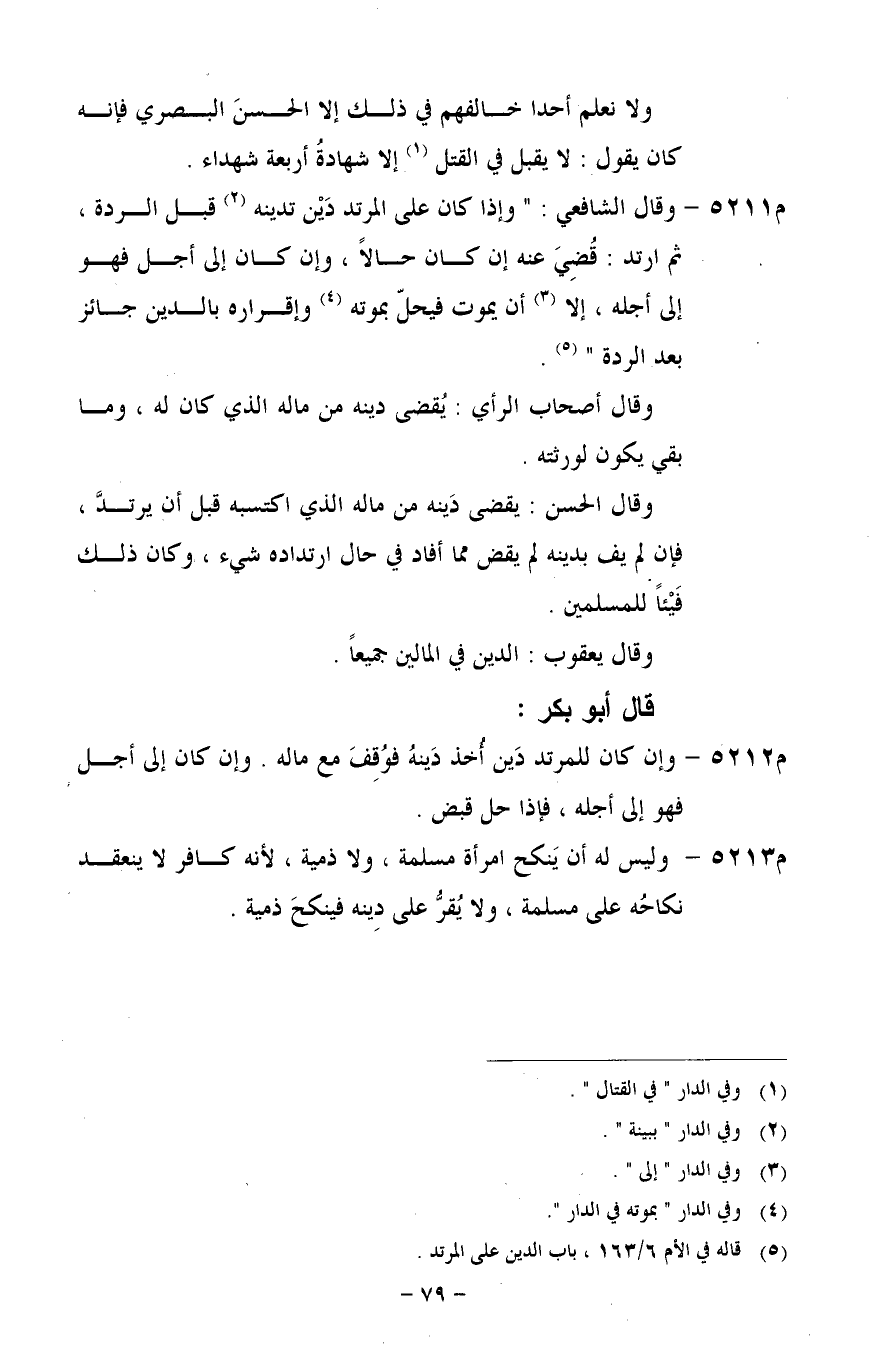 ولا نعلم أحدا خالفهم في ذلك إلا الحسنَ البصري فإنه
كان يقول : لا يقبل في القتل (١) إلا شهادةُ أربعة شهداء .
م٥٢١١ – وقال الشافعي : " وإذا كان على المرتد دَيْن تدينه (٢) قبل الردة ،
ثم ارتد : قُضِيَ عنه إن كان حالاً ، وإن كان إلى أجل فهو
إلى أجله ، إلا (٣) أن يموت فيحلّ بموته (٤) وإقراره بالدين جائز
بعد الردة " (٥) .
وقال أصحاب الرأي : يُقضى دينه من ماله الذي كان له ، وما
بقي يكون لورثته .
وقال الحسن : يقضى دَينه من ماله الذي اكتسبه قبل أن يرتدَّ ،
فإن لم يف بدينه لم يقض مما أفاد في حال ارتداده شيء ، وكان ذلك
فَيْئاً للمسلمين .
وقال يعقوب : الدين في المالين جميعاً .
قال أبو بكر :
م٥٢١٢ – وإن كان للمرتد دَين أُخذ دَينهُ فوُقِفَ مع ماله . وإن كان إلى أجل
فهو إلى أجله ، فإذا حل قبض .
م٥٢١٣ – وليس له أن يَنكح امرأة مسلمة ، ولا ذمية ، لأنه كافر لا ينعقد
نكاحُه على مسلمة ، ولا يُقرُّ على دِينه فينكحَ ذمية .
(١) وفي الدار " في القتال " .
(٢) وفي الدار " ببينة " .
(٣) وفي الدار " إلى " .
(٤) وفي الدار " بموته في الدار ".
(٥) قاله في الأم ١٦٣/٦ ، باب الدين على المرتد .
– ٧٩ –